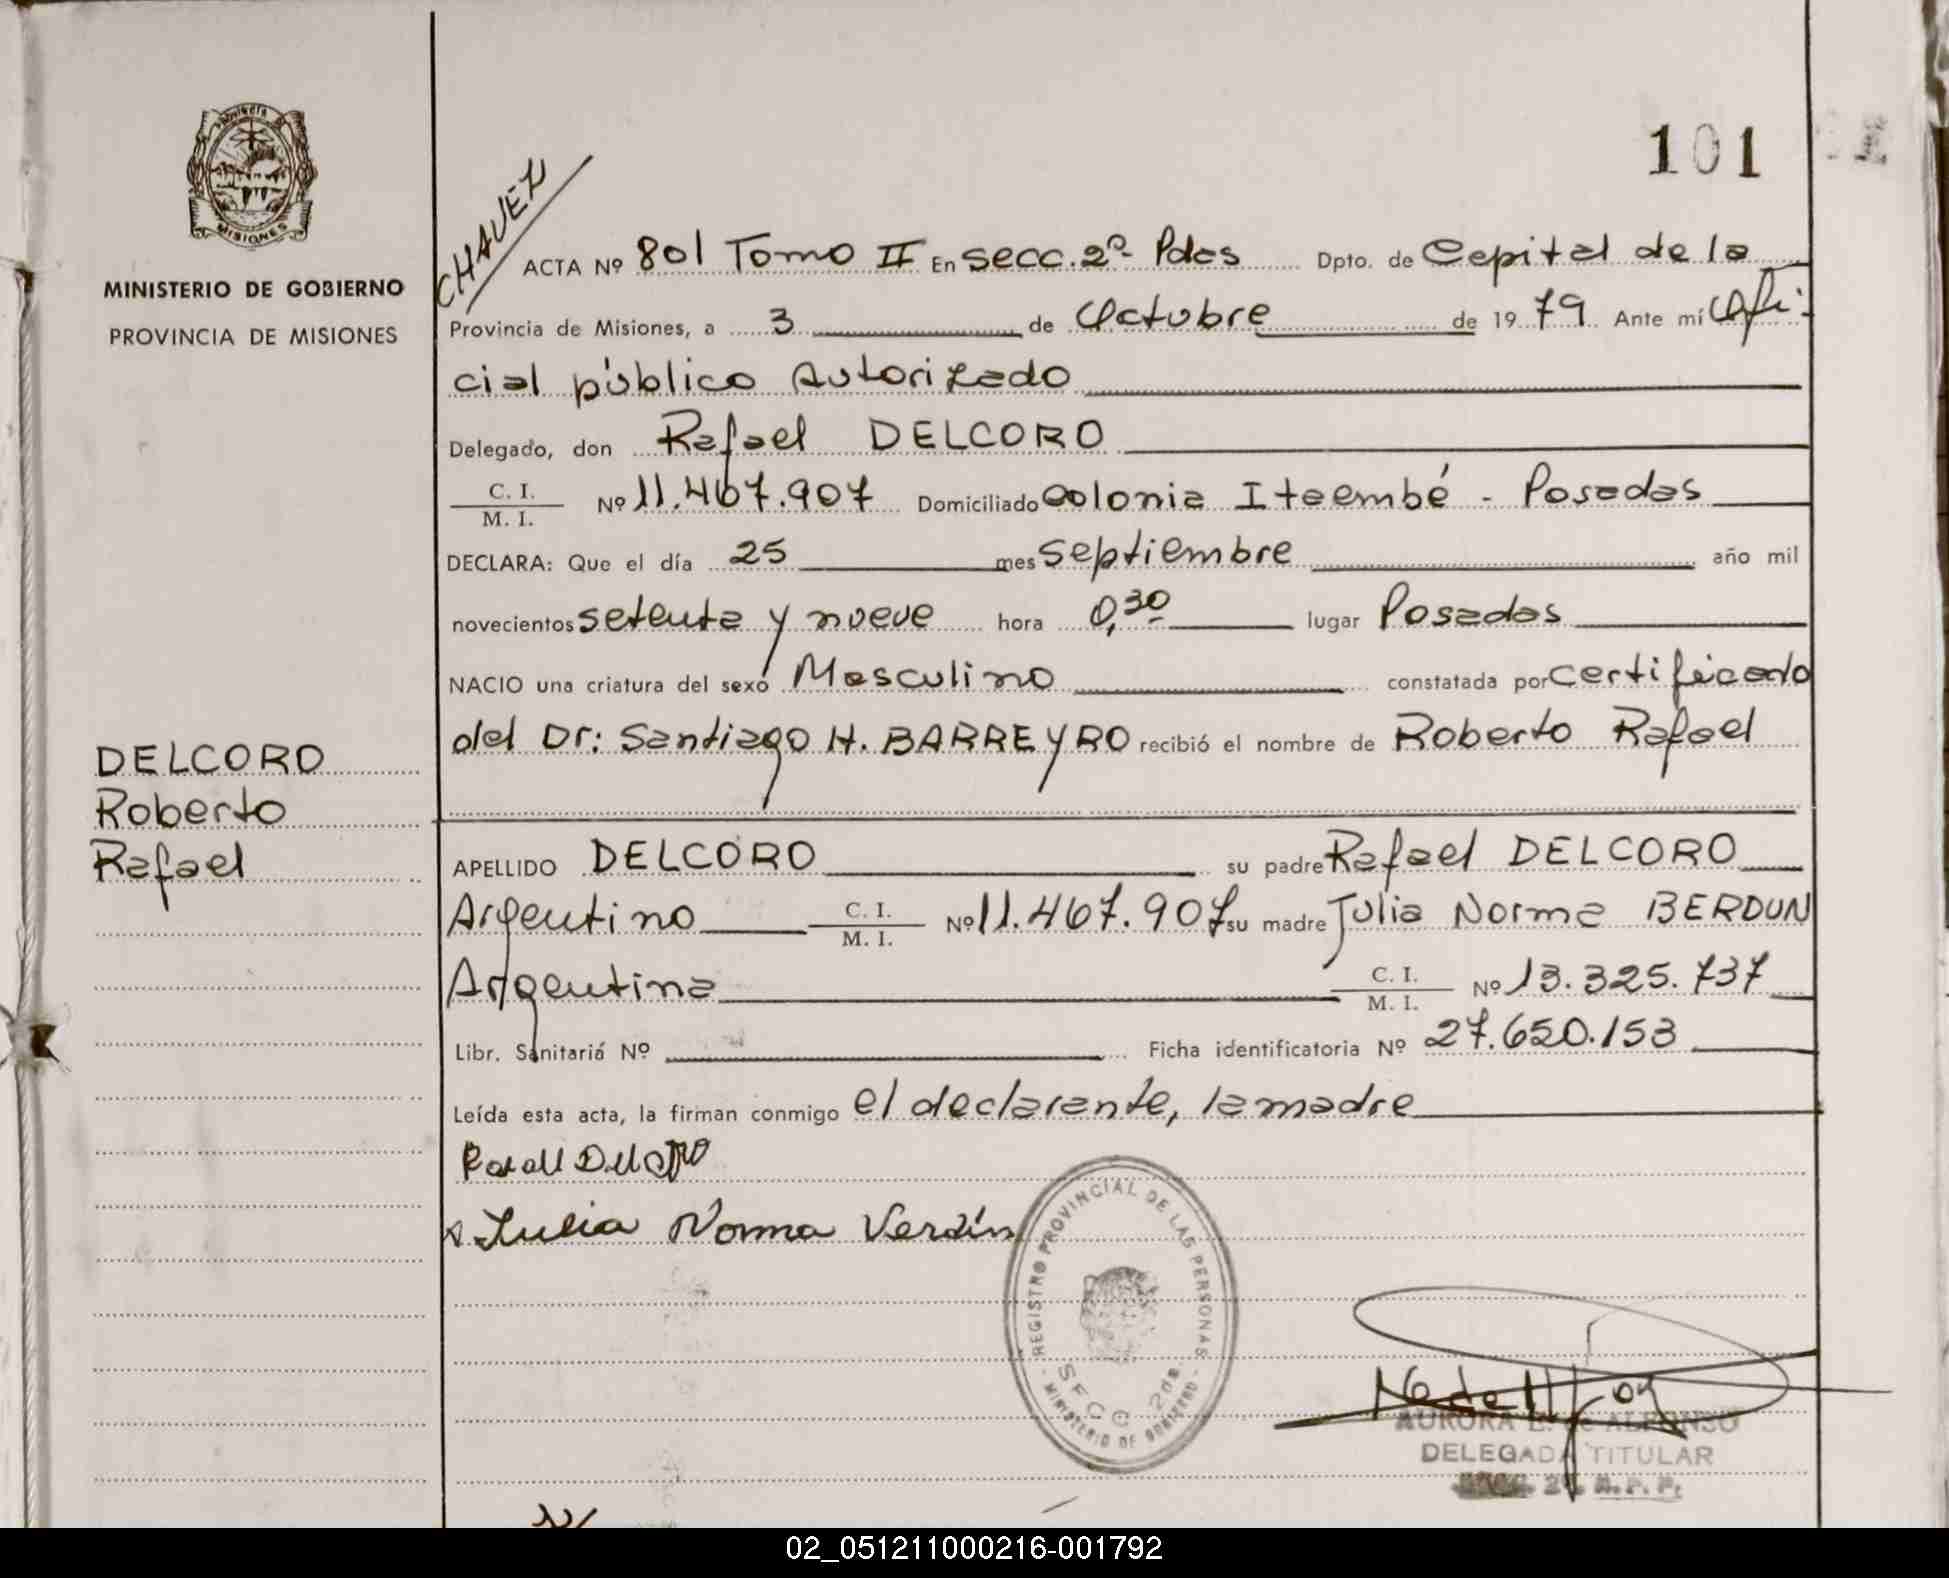 PROVINCIA DE
MISIONES
MINISTERIO DE GOBIERNO
PROVINCIA DE MISIONES
DELCORO
Roberto
Rafael
101
CHAVEZ
ACTA Nº 801 Tomo II En Secc. 2ª Pdas Dpto. de Capital de la
Provincia de Misiones, a 3 de Octubre de 1979 Ante mí Ofi-
cial público Autorizado
Delegado, don Rafael DELCORO
C. I.
M. I. Nº 11.467.907 Domiciliado Colonia Itaembé - Posadas
DECLARA: Que el día 25 mes Septiembre año mil
novecientos setenta y nueve hora 0,30 lugar Posadas
NACIO una criatura del sexo Masculino constatada por certificado
del Dr: Santiago H. BARREYRO recibió el nombre de Roberto Rafael
APELLIDO DELCORO su padre Rafael DELCORO
Argentino C. I.
M. I. Nº 11.467.907 su madre Julia Norma BERDUN
Argentina C. I.
M. I. Nº 13.325.737
Libr. Sanitaria Nº Ficha identificatoria Nº 27.650.153
Leída esta acta, la firman conmigo el declarante, la madre
Rafael Delcoro
Julia Norma Verdún
REGISTRO PROVINCIAL DE LAS PERSONAS
SECC 2da
MINISTERIO DE GOBIERNO
AURORA de ALFONSO
DELEGADA TITULAR
R.P.P.
02_051211000216-001792